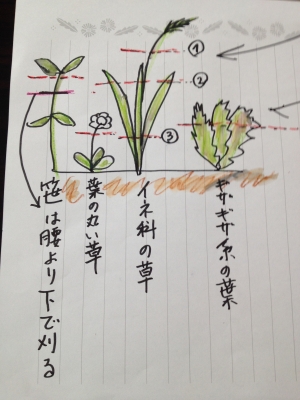 ①
②
③
ギザギザ系の葉
イネ科の草
葉の丸い草
笹は腰より下で刈る